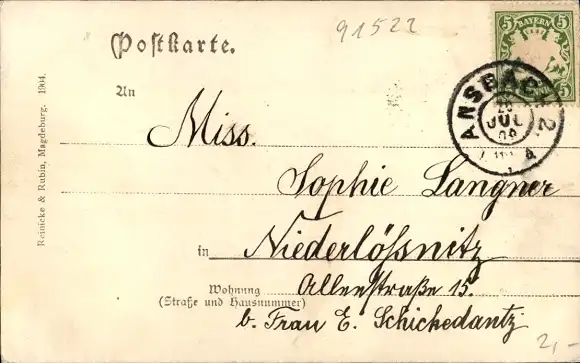 91522
Postkarte.
5 BAYERN 5
5 5
ANSBACH 2
JUL
An
Miss.
Sophie Langner
in Niederlößnitz
Wohnung
(Straße und Hausnummer)
Allenstraße 15.
b. Frau E. Schickedantz
2,-
Reinicke & Rubin, Magdeburg. 1904.